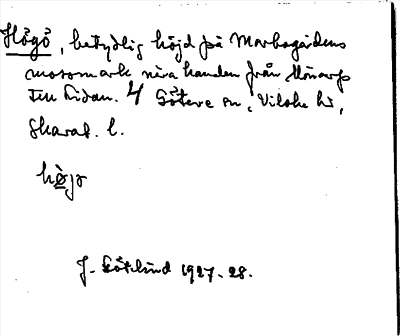 Högö, betydlig höjd på Marbogårdens
mossmark nära handen från Mönarp
sidan. 4 Göteve sn, Vilske hd,
Skarab. l.
högo
J. Götlind 1927-28.